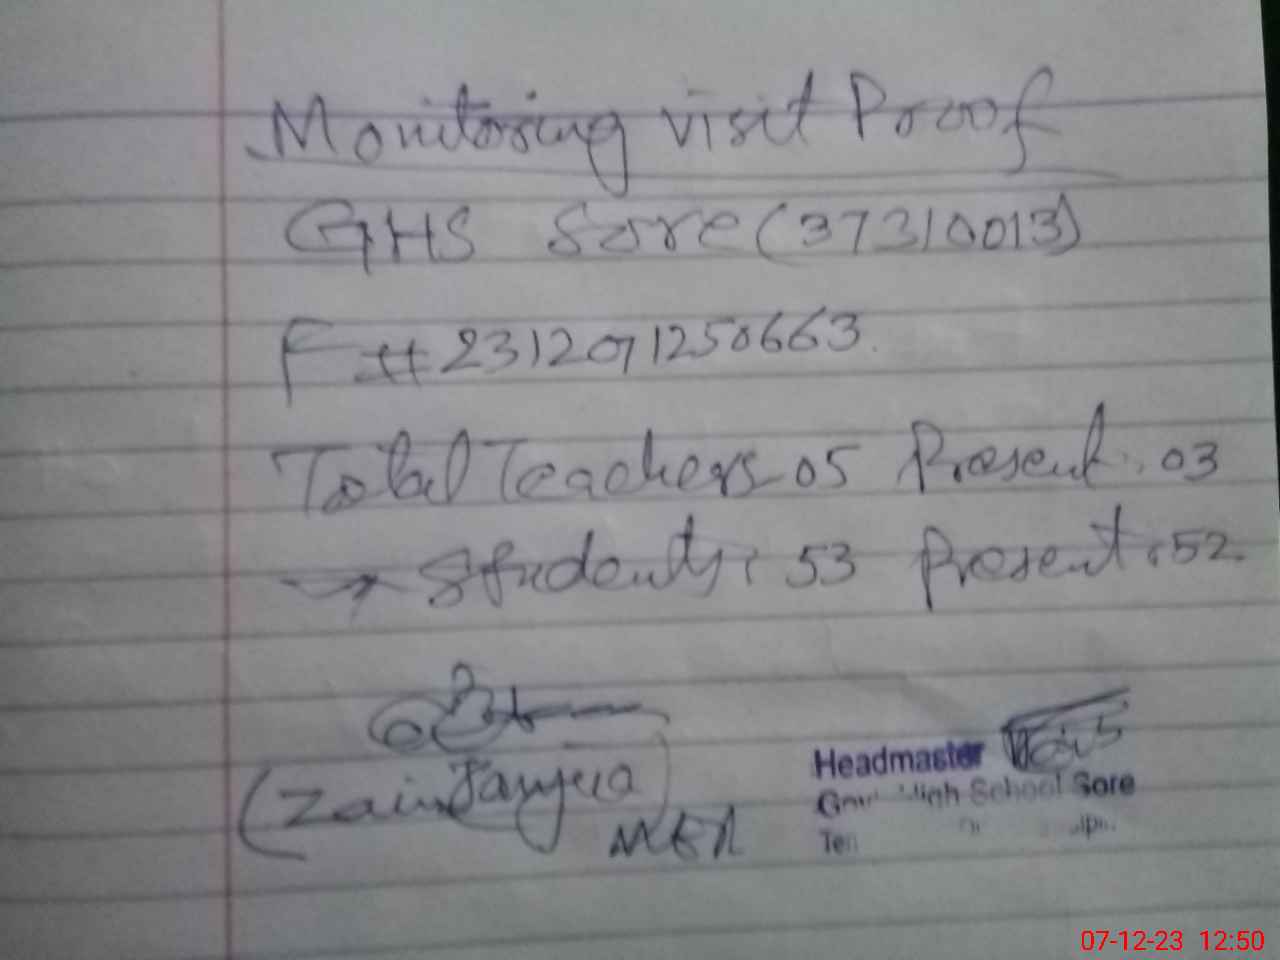 Monitoring visit Proof
GHS Sore (37310013)
F # 2312071250663.
Total Teachers 05 Present: 03
→ Students: 53 Present: 52
(Zain Janjua)
MEA
Headmaster
Govt High School Sore
07-12-23 12:50